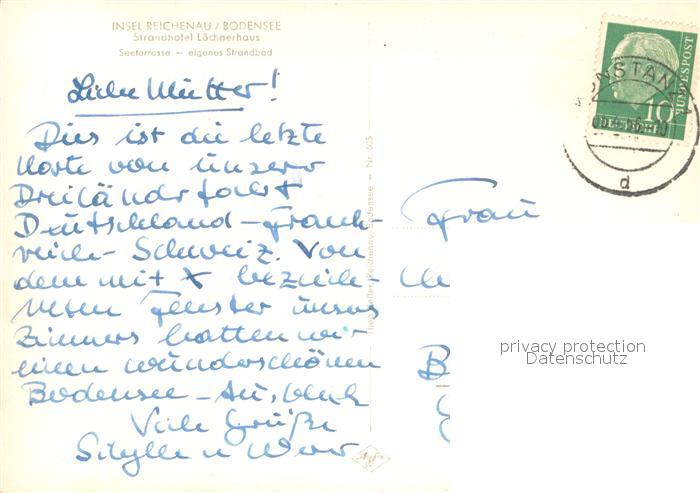 INSEL REICHENAU / BODENSEE
Strandhotel Löchnerhaus
Seeterrasse – eigenes Strandbad
Liebe Mutter!
Dies ist die letzte
Karte von unserer
Dreiländerfahrt
Deutschland – Frank-
reich – Schweiz. Von
dem mit X bezeich-
neten Fenster unseres
Zimmers hatten wir
einen wunderschönen
Bodensee – Ausblick
Viele Grüße
Sibylle u Werner
Reichenau, Bodensee – Nr. 605
Frau
B
KONSTANZ
d
10
DEUTSCHE
BUNDESPOST
privacy protection
Datenschutz